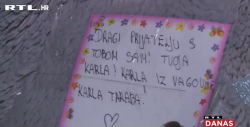 RTL.HR
DRAGI PRIJATELJU S
TOBOM SAM! TVOJA
KARLA! KARLA IZ VAGONA
KARLA TARABA!
RTL
DANAS